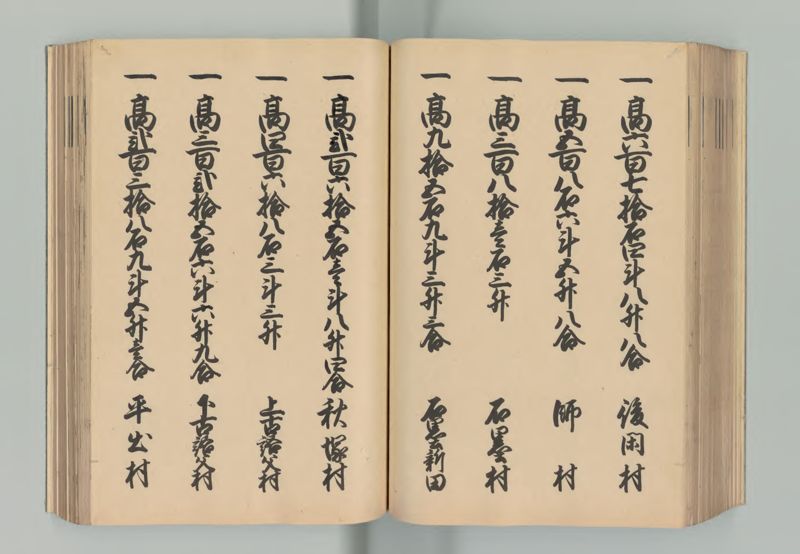 一 高六百七拾石四斗八升八合 後閑村
一 高五百八石六斗五升八合 師村
一 高三百八拾壱石三升 石墨村
一 高九拾五石九斗三升三合 石墨新田
一 高弐百六拾五石壱斗八升四合 秋塚村
一 高四百六拾八石三斗三升 上古語父村
一 高三百弐拾五石六斗六升九合 下古語父村
一 高弐百三拾八石九斗五升壱合 平出村